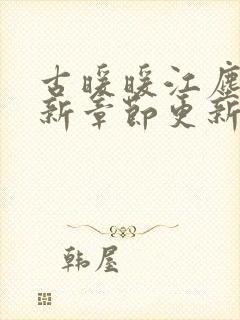 古暖暖江尘
新章节更新
韩屋